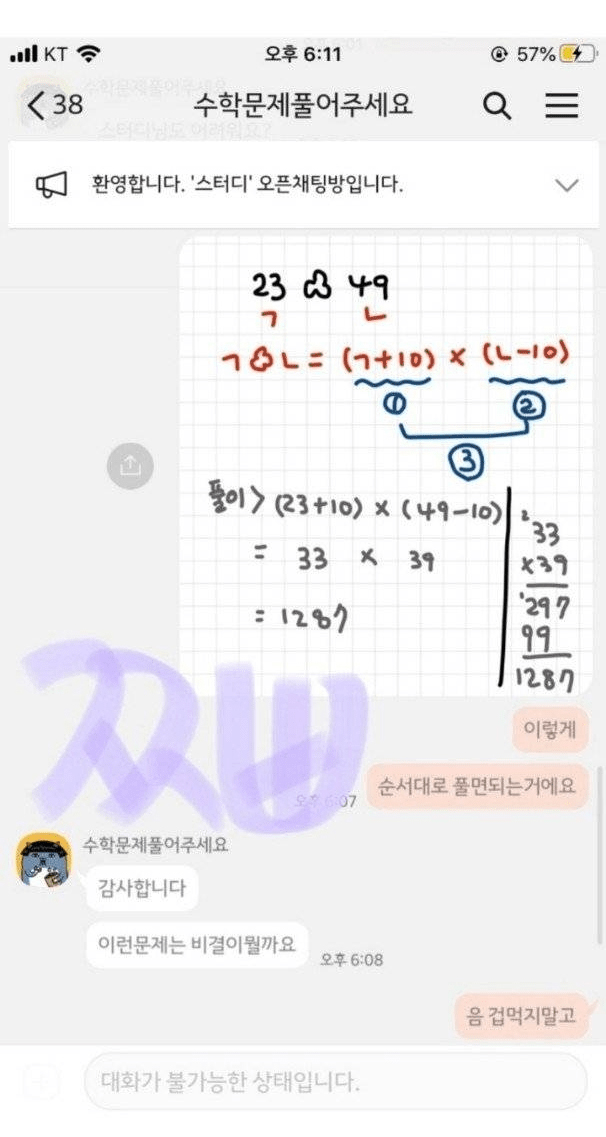 KT 오후 6:11 57%
38 수학문제풀어주세요
환영합니다. '스터디' 오픈채팅방입니다.
23 ♧ 49
ㄱ ㄴ
ㄱ♧ㄴ = (ㄱ+10) × (ㄴ-10)
① ②
③
풀이> (23+10) × (49-10)
= 33 × 39
= 1287
2
33
×39
297
99
1287
쪼빠
이렇게
순서대로 풀면되는거에요
오후 6:07
수학문제풀어주세요
감사합니다
이런문제는 비결이뭘까요
오후 6:08
음 겁먹지말고
대화가 불가능한 상태입니다.